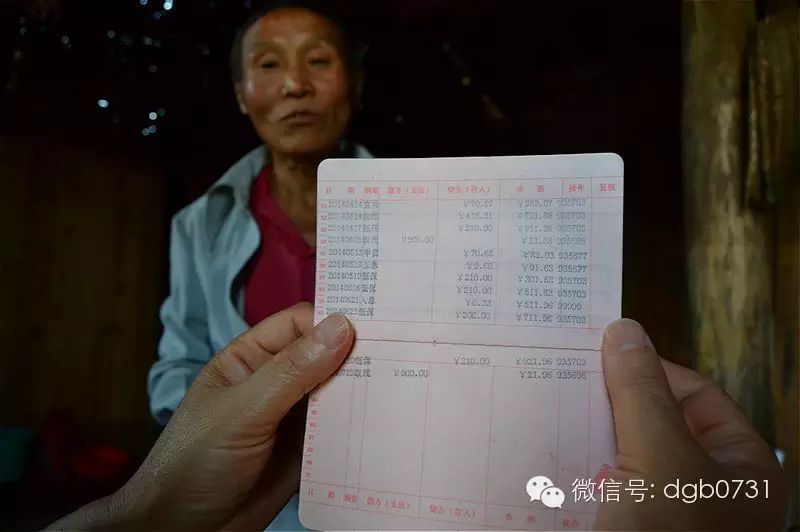 日 期 摘要 借方(支出) 贷方(存入) 余 额 操作 复核
20140414 ¥70.07 ¥283.07 935703
20140414 ¥418.31 ¥701.38 935703
20140417低保 ¥210.00 ¥911.38 935703
20140501取现 ¥900.00 ¥11.38 935696
20140512中良 ¥70.65 ¥82.03 935677
20140512玉米 ¥9.60 ¥91.63 935677
20140519低保 ¥210.00 ¥301.63 935703
20140616低保 ¥210.00 ¥511.63 935703
20140621入息 ¥0.33 ¥511.96 99999
20140623低保 ¥200.00 ¥711.96 935703
低保 ¥210.00 ¥921.96 935703
取现 ¥900.00 ¥21.96 935696
日 期 摘要 借方(支出) 贷方(存入) 余 额 操作
微信号: dgb0731